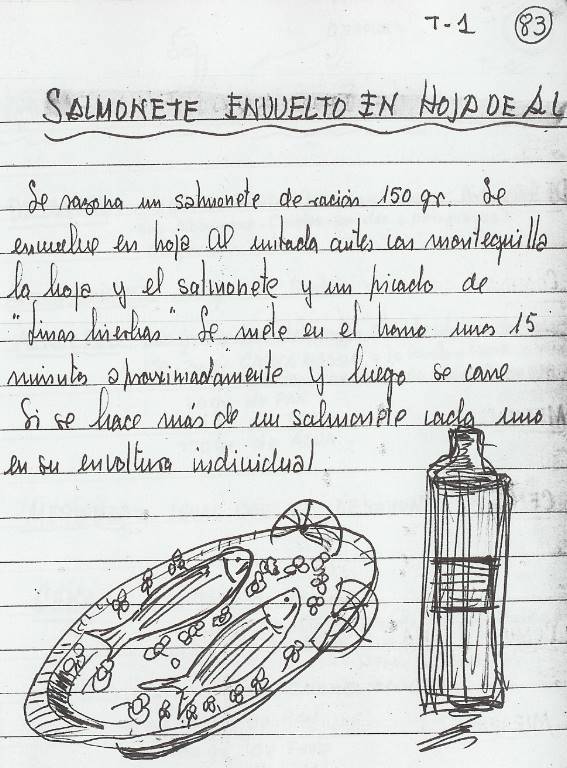 T-1 83
SALMONETE ENVUELTO EN HOJA DE AL
Se sazona un salmonete de ración 150 gr. Se
envuelve en hoja Al untada antes con mantequilla
la hoja y el salmonete y un picado de
"finas hierbas". Se mete en el horno unos 15
minutos aproximadamente y luego se come
Si se hace más de un salmonete cada uno
en su envoltura individual.